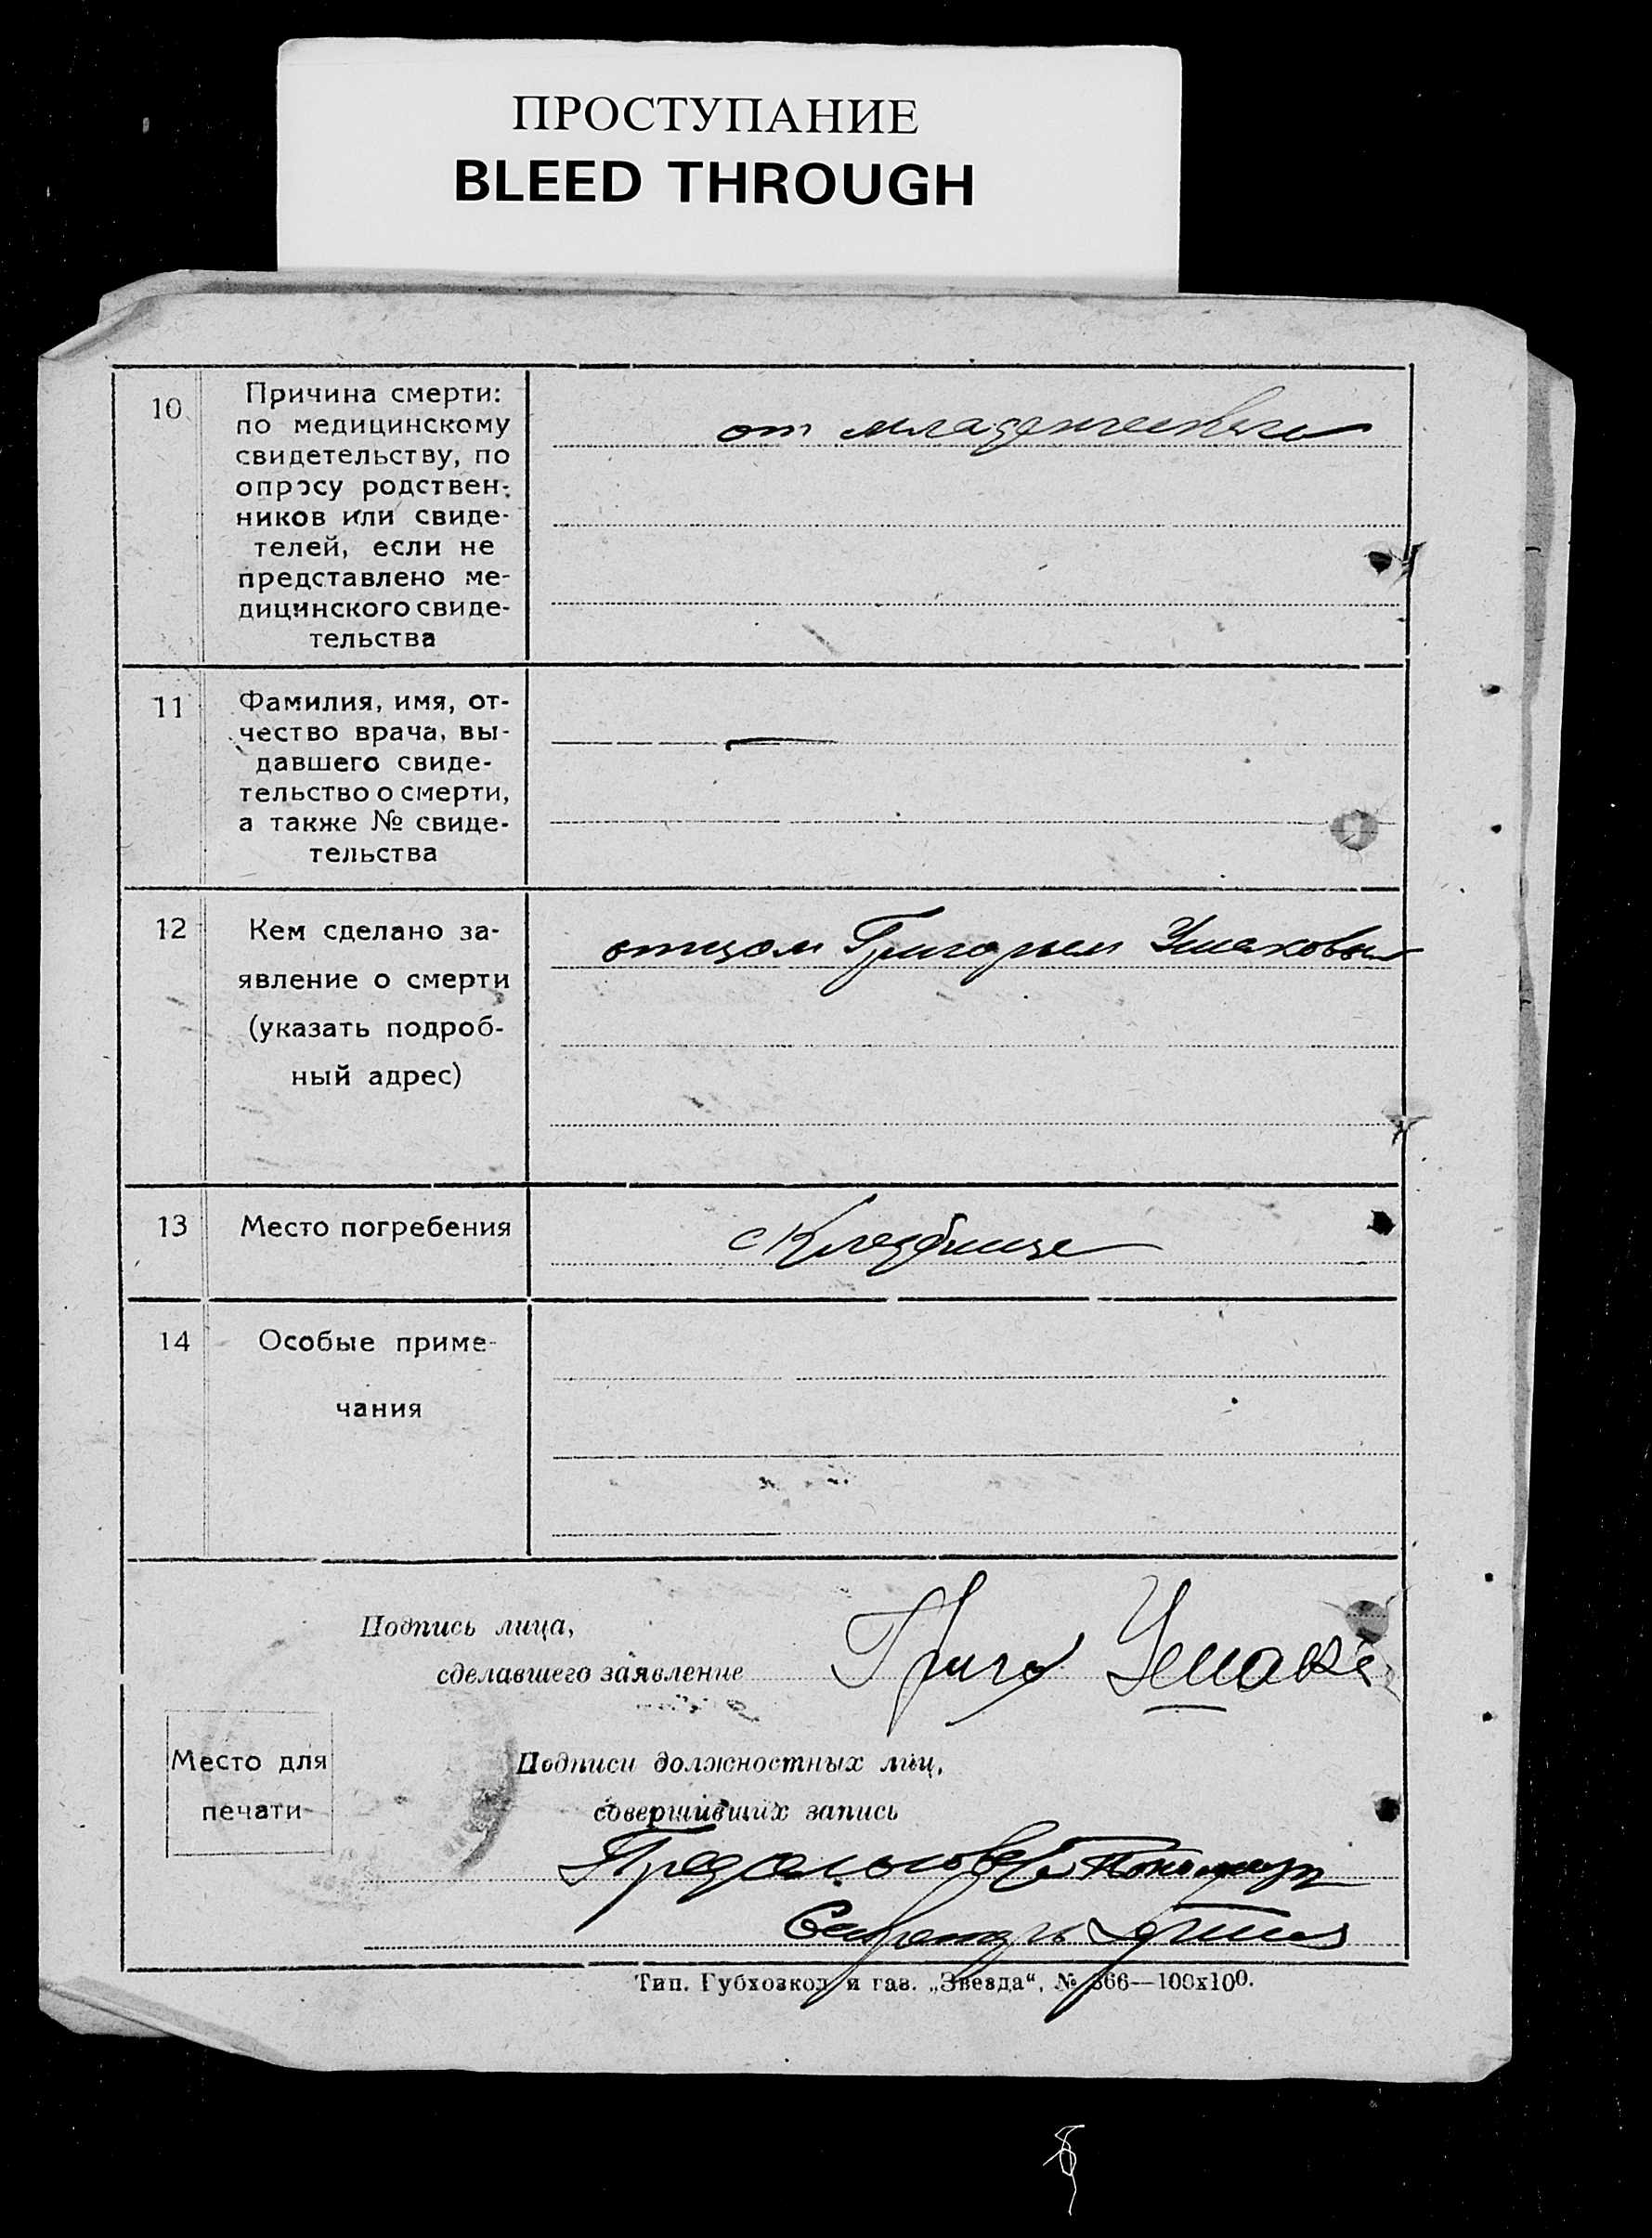 ПРОСТУПАНИЕ
BLEED THROUGH
10
Причина смерти:
по медицинскому
свидетельству, по
опросу родствен-
ников или свиде-
телей, если не
представлено ме-
дицинского свиде-
тельства
от младенческаго
11
Фамилия, имя, от-
чество врача, вы-
давшего свиде-
тельство о смерти,
а также № свиде-
тельства
—
12
Кем сделано за-
явление о смерти
(указать подроб-
ный адрес)
отцом Григорьем Ушаковым
13
Место погребения
Кладбище
14
Особые приме-
чания
Подпись лица,
сделавшего заявление
Григо Ушаков
Место для
печати
Подписи должностных лиц,
совершивших запись
Секретарь
Тип. Губхозкол и газ. „Звезда“, № 366—100х100.